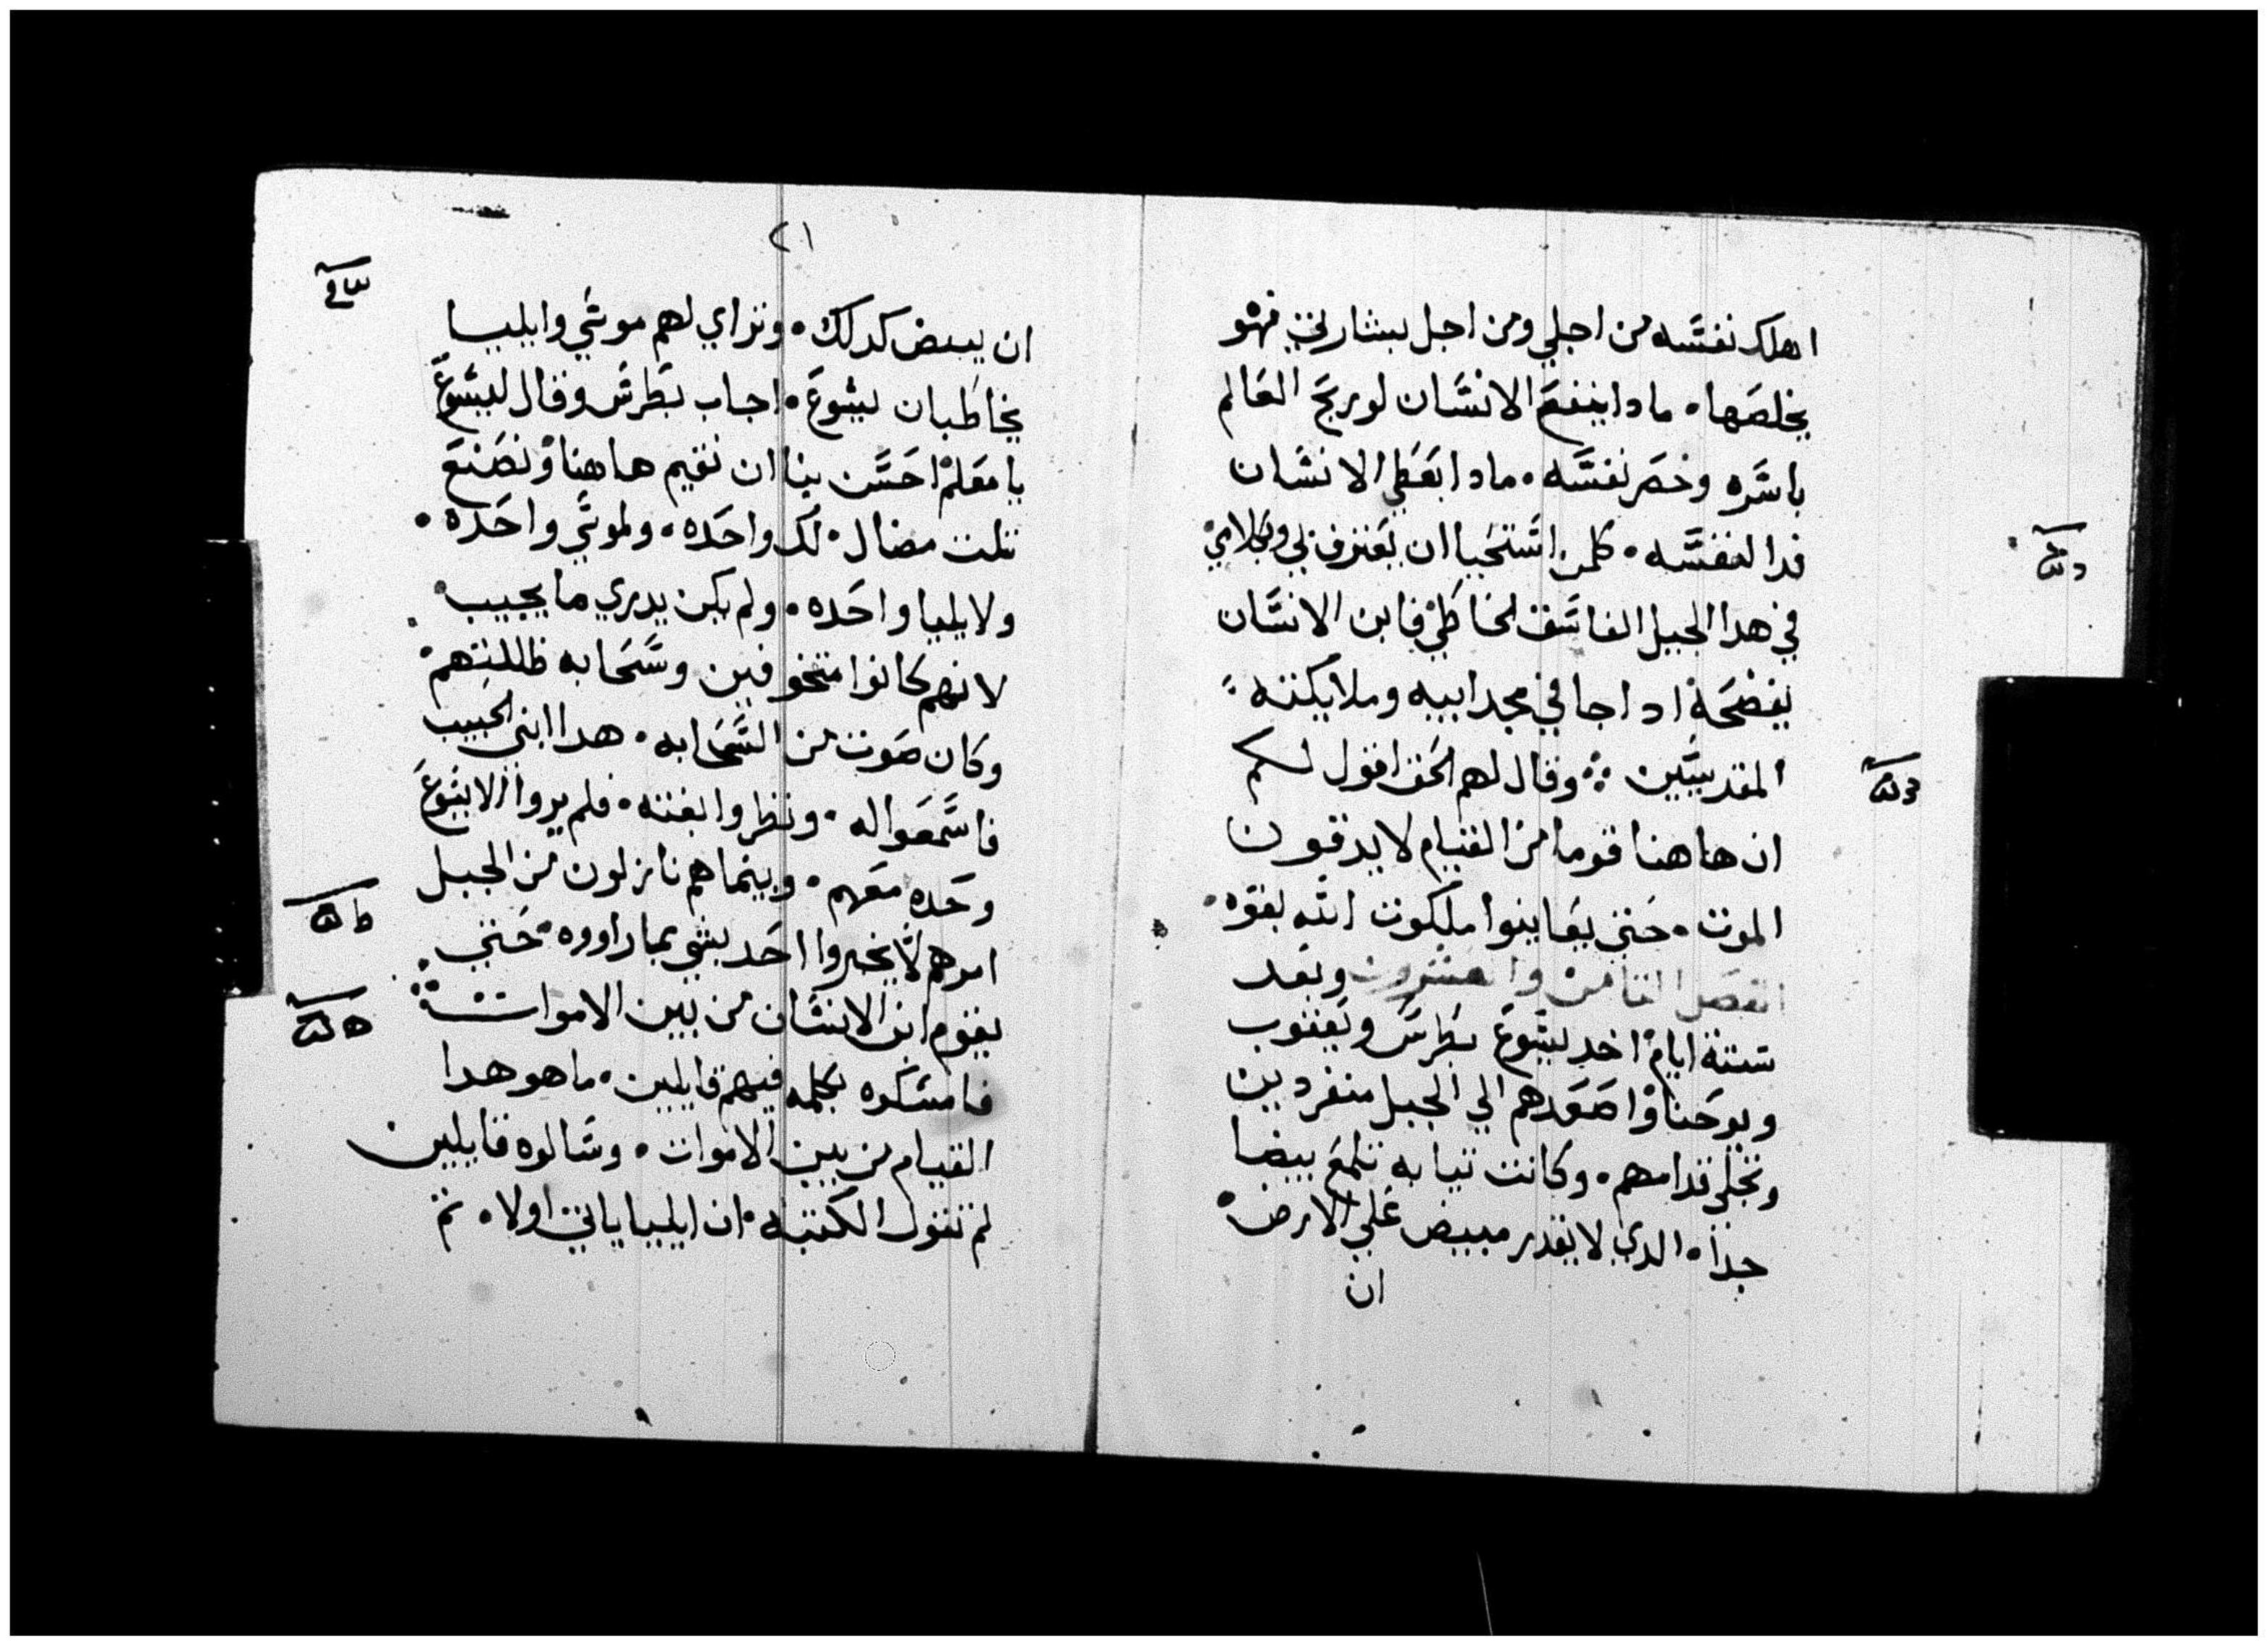 اهلك نفسه من اجلي ومن اجل بشارتي فهو
يخلصها. مادا ينفع الانسان لو ربح العالم
باسره وخصر نفسه. مادا يعطي الانسان
فدا لنفسه. كلمن استحيا ان يعترف بي وبكلامي
في هدا الجيل الفاسق الخاطي فابن الانسان
يفضحه ادا جا في مجد ابيه وملايكته
المقدسين ۞ وقال لهم الحق اقول لكم
ان هاهنا قوما من القيام لا يدقون
الموت. حتي يعاينوا ملكوت الله بقوه.
الفصل التامن والعشرون وبعد
ستة ايام اخد يسوع بطرس ويعقوب
ويوحنا واصعدهم الي الجبل منفردين
وتجلي قدامهم. وكانت تيابه تلمع بيضا
جدا. الدي لا يقدر مبيض علي الارض
ان
٢١
ان يبيض كدلك. وتراي لهم موسي وايليا
يخاطبان يسوع. اجاب بطرس وقال ليسوع
يا معلم احسن بنا ان نقيم هاهنا ونصنع
تلت مضال. لك واحده. ولموسي واحده.
ولايليا واحده. ولم يكن يدري ما يجيب
لانهم كانوا متخوفين وسحابه ظللتهم
وكان صوت من السحابه. هدا ابني الحبيب
فاسمعوا له. ونظروا بغته. فلم يروا الا يسوع
وحده معهم. وبينما هم نازلون من الجبل
امرهم لا يخبروا احد بشي بما راووه حتي
يقوم ابن الانسان من بين الاموات
فامسكوه بكلمه فيهم قايلين. ما هو هدا
القيام من بين الاموات. وسالوه قايلين
لم تقول الكتبه. ان ايليا ياتي اولا. تم